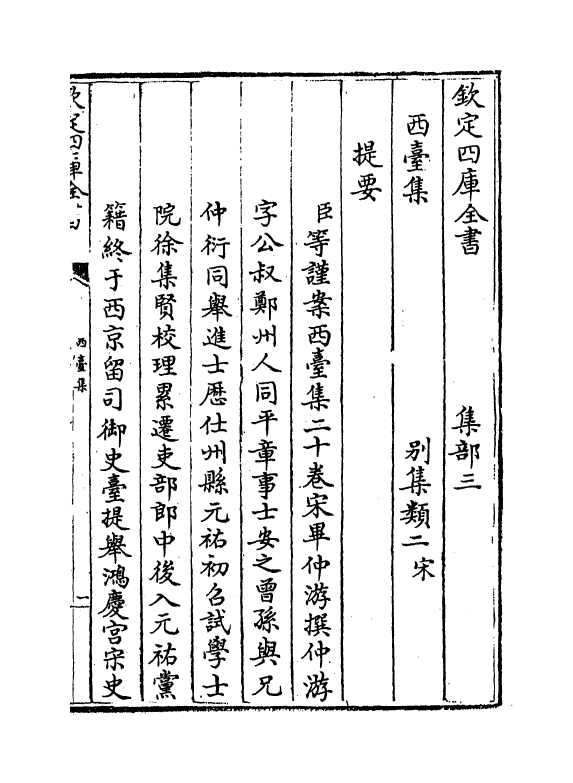 欽定四庫全書　集部三
西臺集　別集類二宋
提要
臣等謹案西臺集二十卷宋畢仲游撰仲游
字公叔鄭州人同平章事士安之曾孫與兄
仲衍同舉進士歴仕州縣元祐初召試學士
院徐集賢校理累遷吏部郎中後入元祐黨
籍終于西京留司御史臺提舉鴻慶宮宋史
欽定四庫全書
西臺集
一